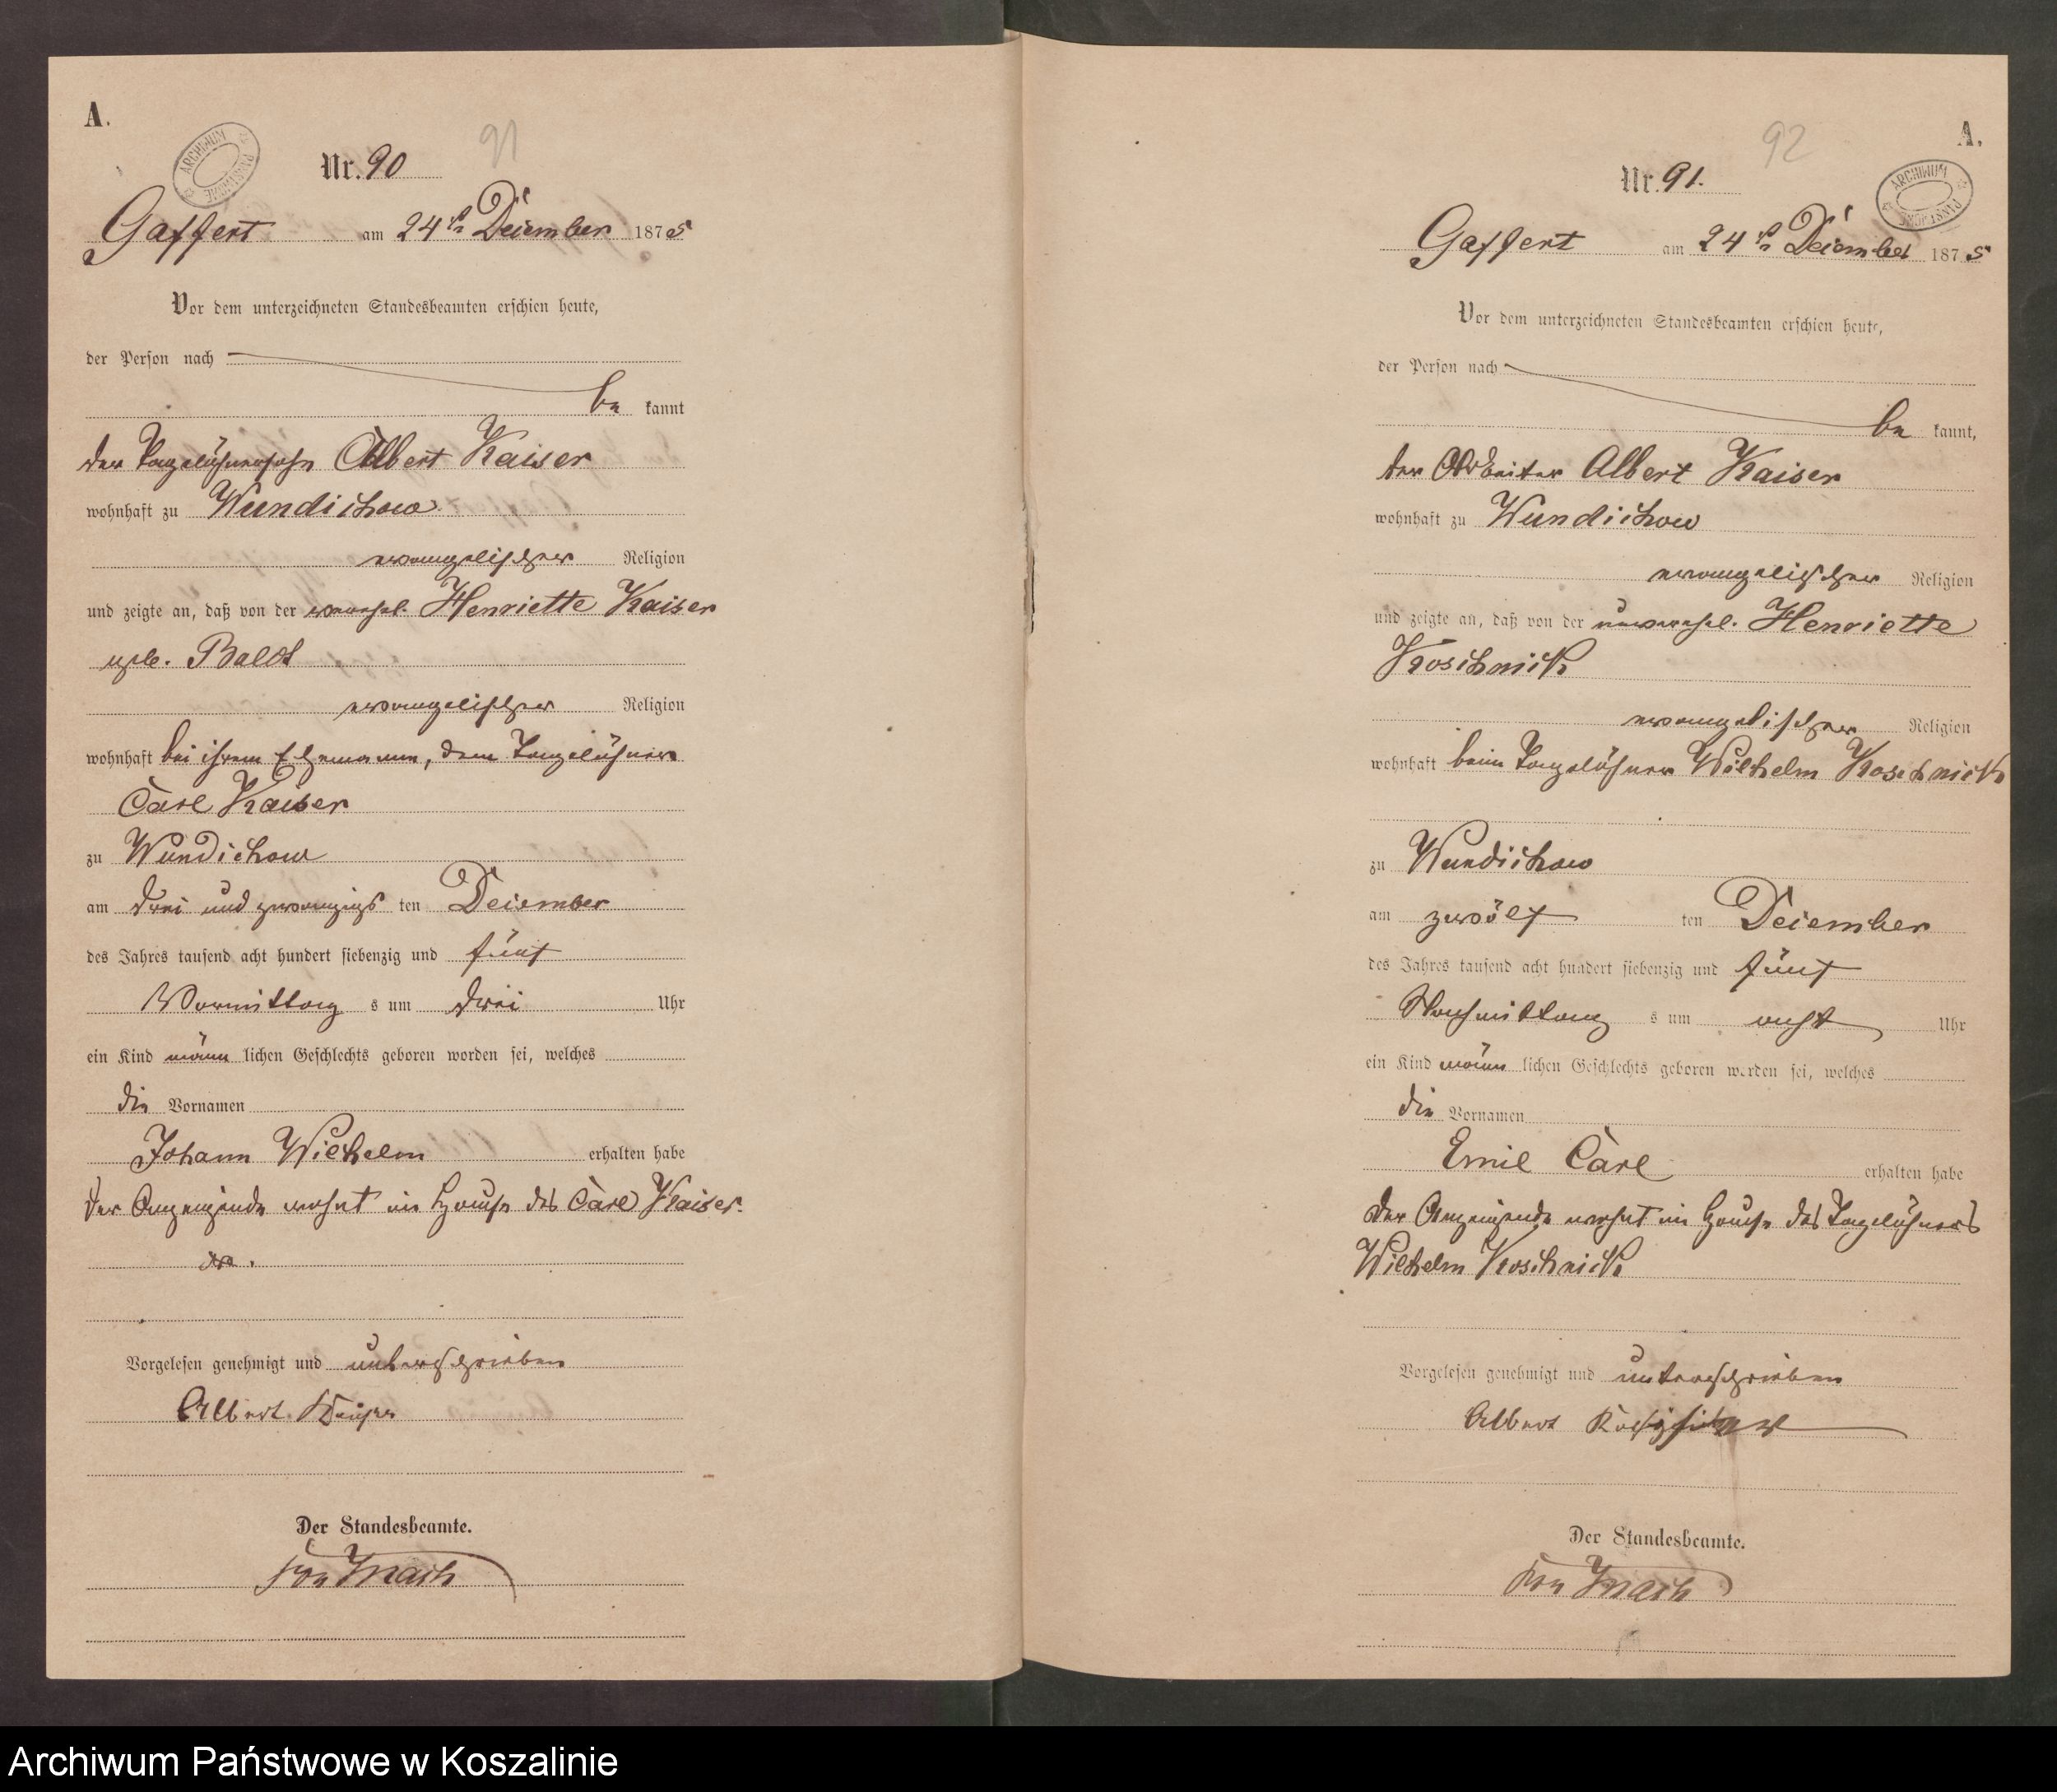 A.
ARCHIWUM PAŃSTWOWE
91
Nr. 90
Gaffert am 24ten December 1875
Vor dem unterzeichneten Standesbeamten erschien heute,
der Person nach
be kannt
der Tagelöhnersohn Albert Kaiser
wohnhaft zu Wundichow
evangelischer Religion
und zeigte an, daß von der verehel. Henriette Kaiser
geb. Baldt
evangelischer Religion
wohnhaft bei ihrem Ehemanne, dem Tagelöhner
Carl Kaiser
zu Wundichow
am drei und zwanzigs ten December
des Jahres tausend acht hundert siebenzig und fünf
Vormittag s um drei Uhr
ein Kind männ lichen Geschlechts geboren worden sei, welches
die Vornamen
Johann Wilhelm erhalten habe
Der Anzeigende wohnt im Hause des Carl Kaiser.
Vorgelesen genehmigt und unterschrieben
Albert Kaiser
Der Standesbeamte.
von Mach
A.
92
ARCHIWUM PAŃSTWOWE
Nr. 91.
Gaffert am 24ten December 1875
Vor dem unterzeichneten Standesbeamten erschien heute,
der Person nach
be kannt,
der Arbeiter Albert Kaiser
wohnhaft zu Wundichow
evangelischer Religion
und zeigte an, daß von der unverehel. Henriette
Koschnick
evangelischer Religion
wohnhaft beim Tagelöhner Wilhelm Koschnick
zu Wundichow
am zwölf ten December
des Jahres tausend acht hundert siebenzig und fünf
Nachmittag s um acht Uhr
ein Kind männ lichen Geschlechts geboren worden sei, welches
die Vornamen
Emil Carl erhalten habe
Der Anzeigende wohnt im Hause des Tagelöhners
Wilhelm Koschnick
Vorgelesen genehmigt und unterschrieben
Albert
Der Standesbeamte.
von Mach
Archiwum Państwowe w Koszalinie